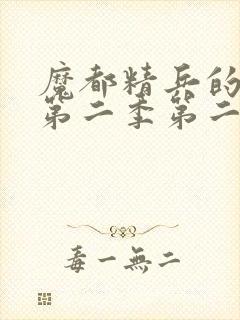 魔都精兵的
第二季第二
毒一無二